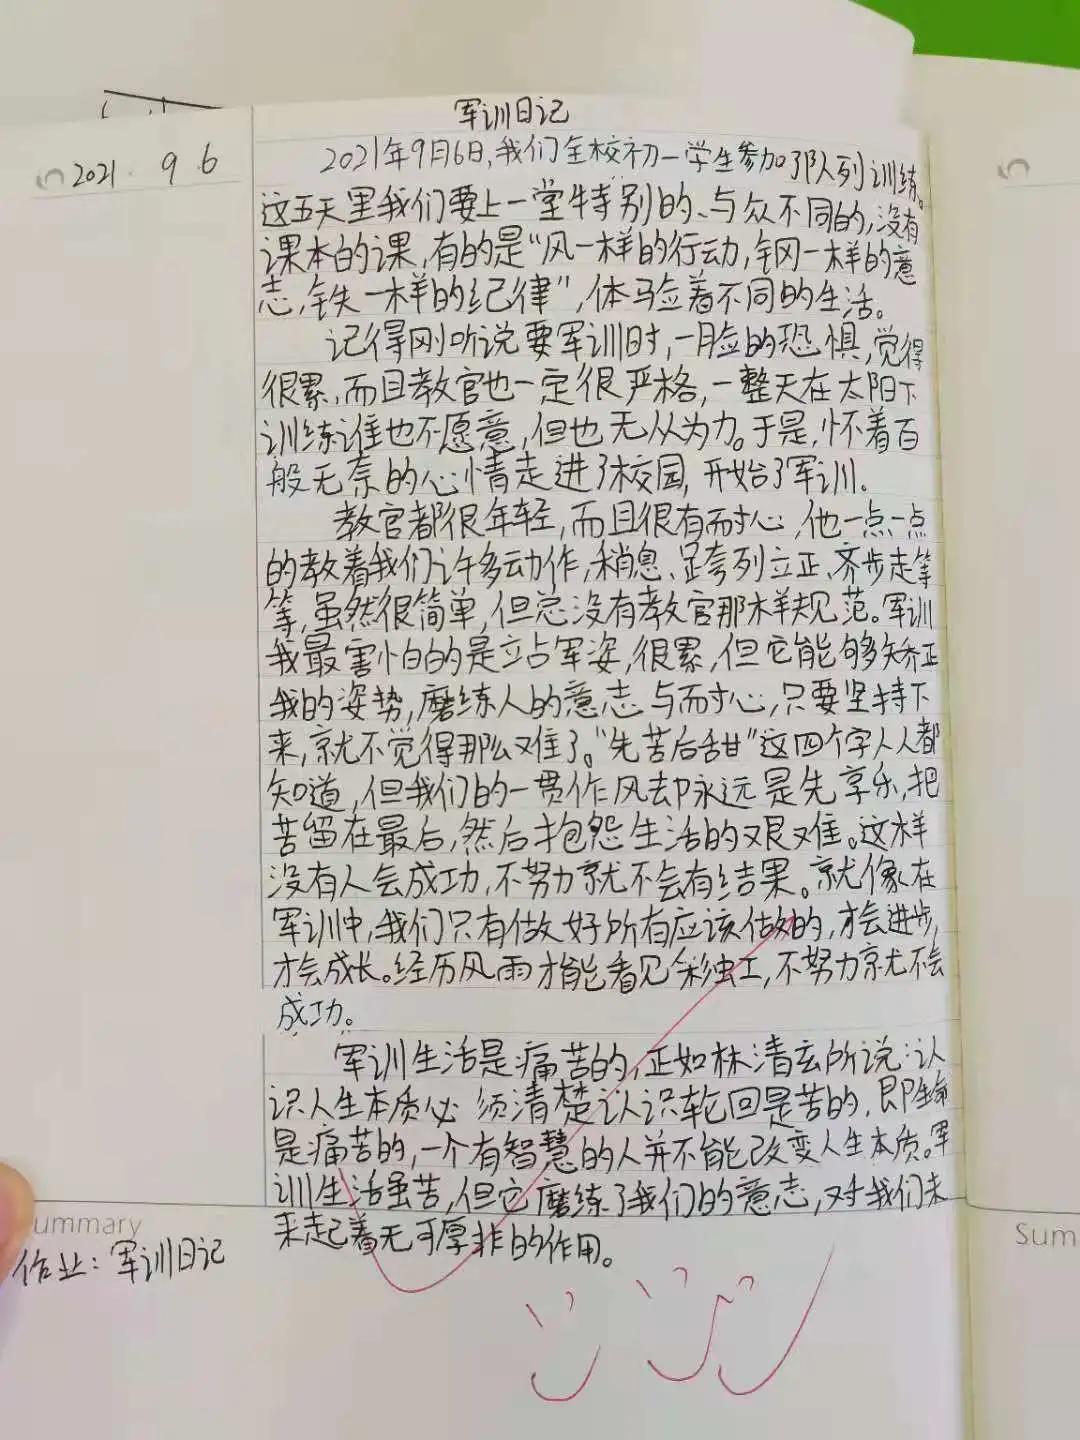 军训日记
2021.9.6
2021年9月6日,我们全校初一学生参加了队列训练。
这五天里我们要上一堂特别的、与众不同的,没有
课本的课,有的是“风一样的行动,钢一样的意
志,铁一样的纪律”,体验着不同的生活。
记得刚听说要军训时,一脸的恐惧,觉得
很累,而且教官也一定很严格,一整天在太阳下
训练谁也不愿意,但也无从为力。于是,怀着百
般无奈的心情走进了校园,开始了军训.
教官都很年轻,而且很有耐心,他一点一点
的教着我们许多动作,稍息、跨列立正、齐步走等
等,虽然很简单,但总没有教官那样规范。军训
我最害怕的是立占军姿,很累,但它能够矫正
我的姿势,磨练人的意志与耐心,只要坚持下
来,就不觉得那么难了。“先苦后甜”这四个字人人都
知道,但我们的一贯作风却永远是先享乐,把
苦留在最后,然后抱怨生活的艰难。这样
没有人会成功,不努力就不会有结果。就像在
军训中,我们只有做好所有应该做的,才会进步,
才会成长。经历风雨才能看见彩虹,不努力就不会
成功。
军训生活是痛苦的,正如林清玄所说:认
识人生本质必须清楚认识轮回是苦的,即生命
是痛苦的,一个有智慧的人并不能改变人生本质。军
训生活虽苦,但它磨练了我们的意志,对我们未
来起着无可厚非的作用。
Summary
作业:军训日记
Sum